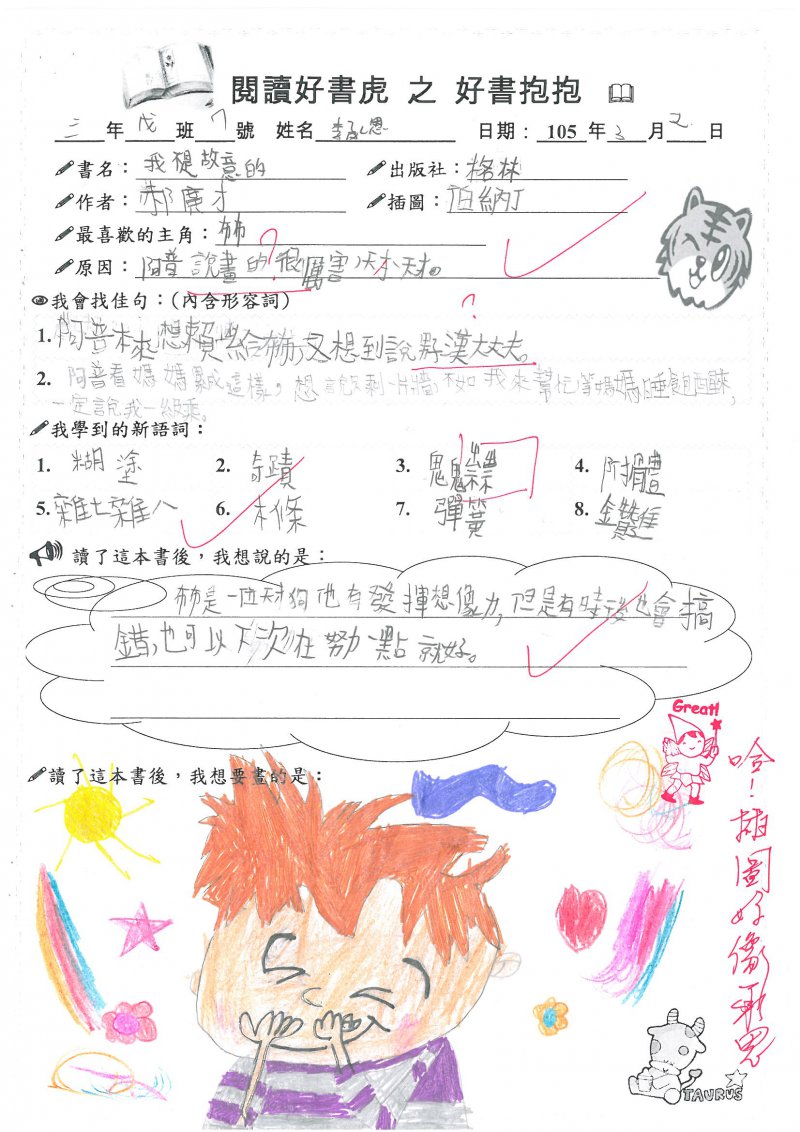 閱讀好書虎 之 好書抱抱
三 年 戊 班 7 號 姓名 李 恩 日期: 105 年 3 月 2 日
書名: 我是故意的 出版社: 格林
作者: 郝廣才 插圖: 坦納丁
最喜歡的主角: 布布
原因: 阿普說畫的很厲害,天才。 ?
我會找佳句:(內含形容詞) ?
1. 阿普本來想賴給布布,又想到說男子漢大丈夫。
2. 阿普看媽媽累成這樣,想說只剩一片牆,不如我來幫忙等媽媽睡飽醒來,
一定說我一級乖。
我學到的新語詞:
1. 糊塗 2. 奇蹟 3. 鬼鬼祟祟 4. 附體
5. 雜七雜八 6. 木條 7. 彈簧 8. 金龜
讀了這本書後,我想說的是:
布布是一位天才狗他有發揮想像力,但是有時後也會搞
錯,也可以下次在努力一點就好。
Great!
讀了這本書後,我想要畫的是:
哈!插圖好像 恩
TAURUS